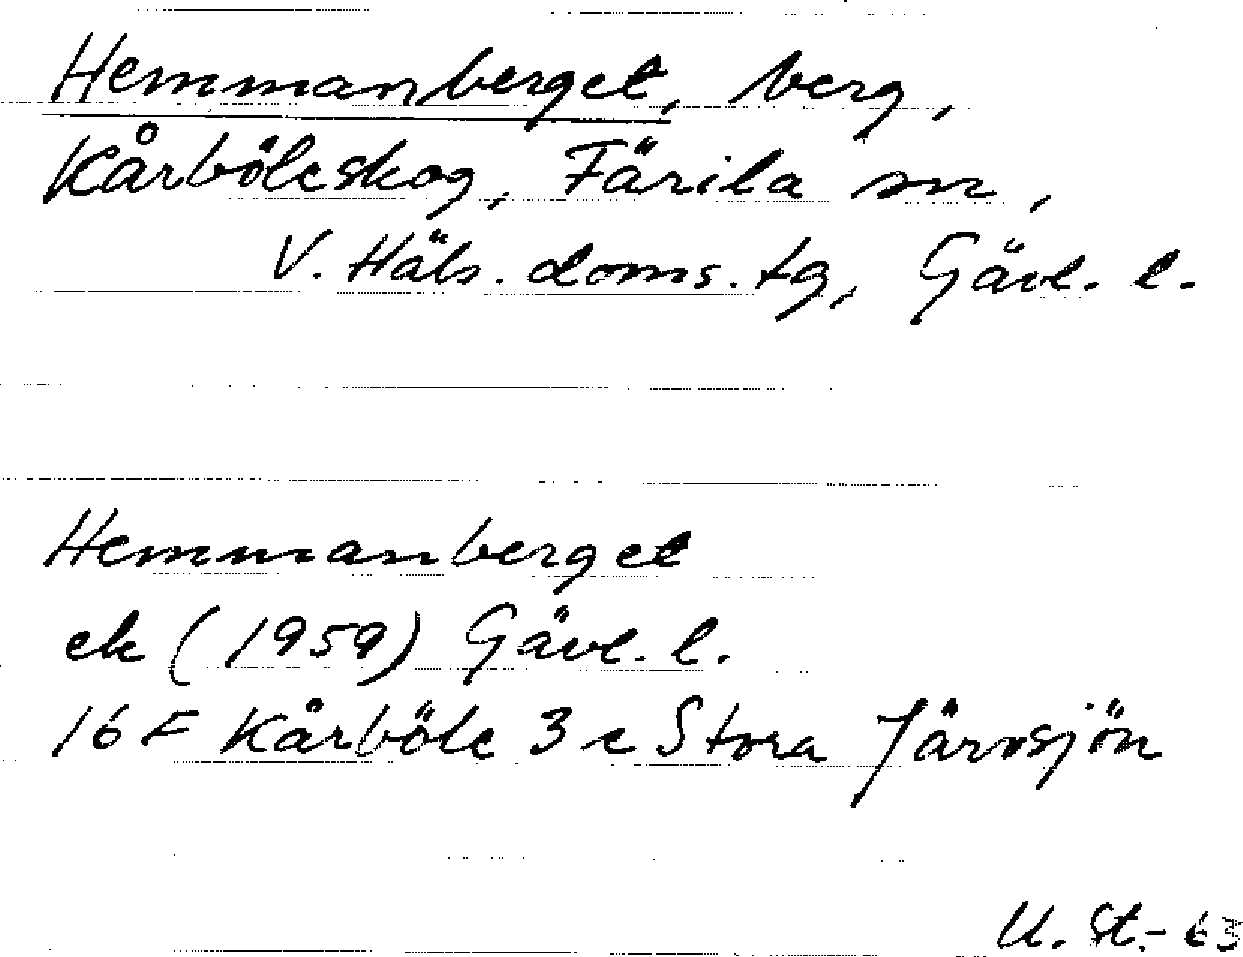 Hemmanberget, berg,
Kårböleskog, Färila sn,
V. Häls. doms. tg, Gävl. l.
Hemmanberget
ek (1959) Gävl. l.
16 F Kårböle 3 e Stora Järvsjön
U. St.- 63